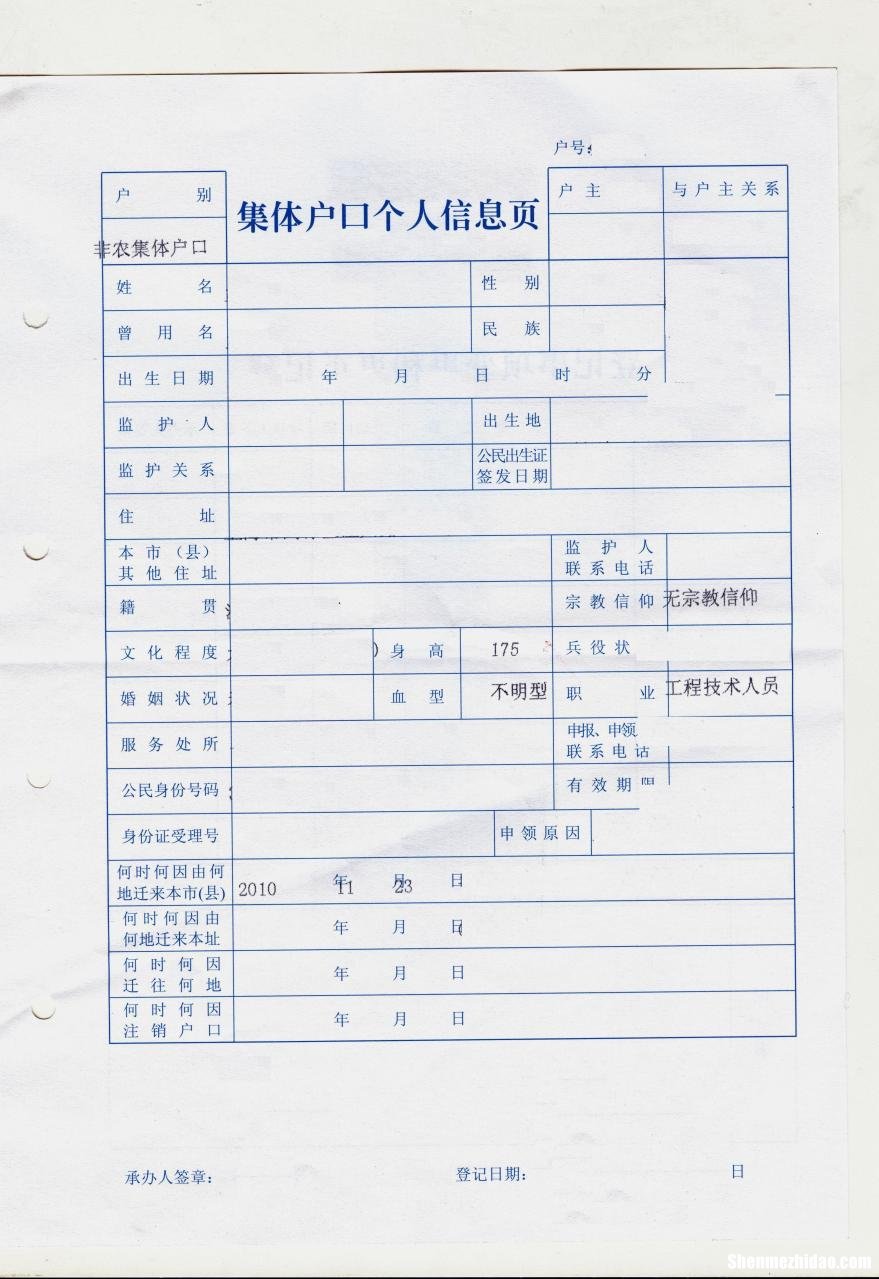 户号:
户 别
集体户口个人信息页
户 主
与户主关系
非农集体户口
姓 名
性 别
曾 用 名
民 族
出生日期
年 月 日 时 分
监 护 人
出 生 地
监护关系
公民出生证
签发日期
住 址
本 市（县）
其他住址
监 护 人
联系电话
籍 贯
宗教信仰
无宗教信仰
文化程度
身 高
175
兵役状
婚姻状况
血 型
不明型
职 业
工程技术人员
服务处所
申报、申领
联系电话
公民身份号码
有效期限
身份证受理号
申领原因
何时何因由何
地迁来本市(县)
2010 年 11 月 23 日
何时何因由
何地迁来本址
年 月 日
何时何因
迁往何地
年 月 日
何时何因
注销户口
年 月 日
承办人签章:
登记日期:
日
Shenmezhidao.com